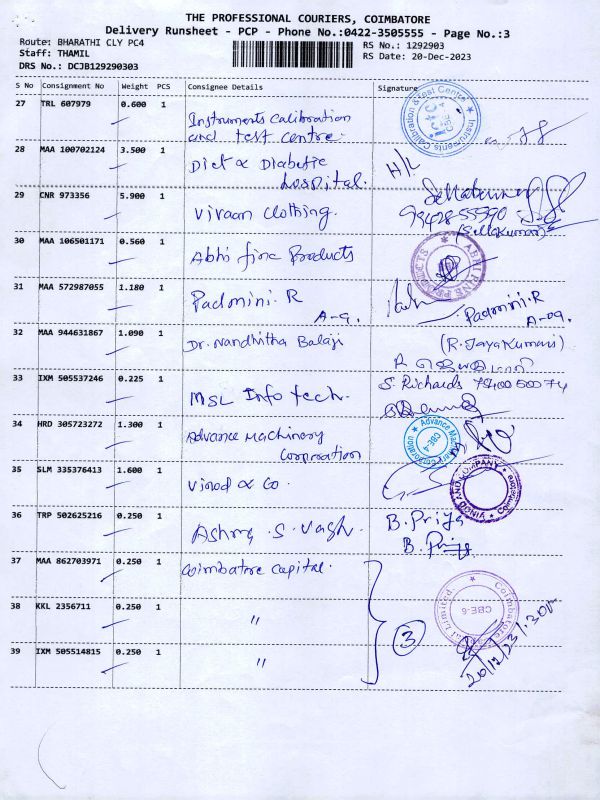 THE PROFESSIONAL COURIERS, COIMBATORE
Delivery Runsheet - PCP - Phone No.:0422-3505555 - Page No.:3
Route: BHARATHI CLY PC4
RS No.: 1292903
Staff: THAMIL
RS Date: 20-Dec-2023
DRS No.: DCJB129290303
S No Consignment No Weight PCS Consignee Details Signature
27 TRL 607979 0.600 1 Instruments Calibration
and test centre.
28 MAA 100702124 3.500 1 Diet & Diabetic H/L
hospital.
29 CNR 973356 5.900 1 Vivaan Clothing.
(SellaKumar)
30 MAA 106501171 0.560 1 Abhi fine Products
31 MAA 572987055 1.180 1 Padmini.R Padmini.R
A-9. A-09.
32 MAA 944631867 1.090 1 Dr. Nandhitha Balaji (R.JayaKumari)
33 IXM 505537246 0.225 1 MSL Info tech. S. Richards
34 HRD 305723272 1.300 1 Advance Machinery
Corporation
Advance Machinery Corporation CBE-4
35 SLM 335376413 1.600 1 Vinod & Co.
36 TRP 502625216 0.250 1 B.Priya
B.Priya
37 MAA 862703971 0.250 1 Coimbatore Capital.
38 KKL 2356711 0.250 1 "
3
Coimbatore Capital Limited CBE-6
39 IXM 505514815 0.250 1 "
20/12/23